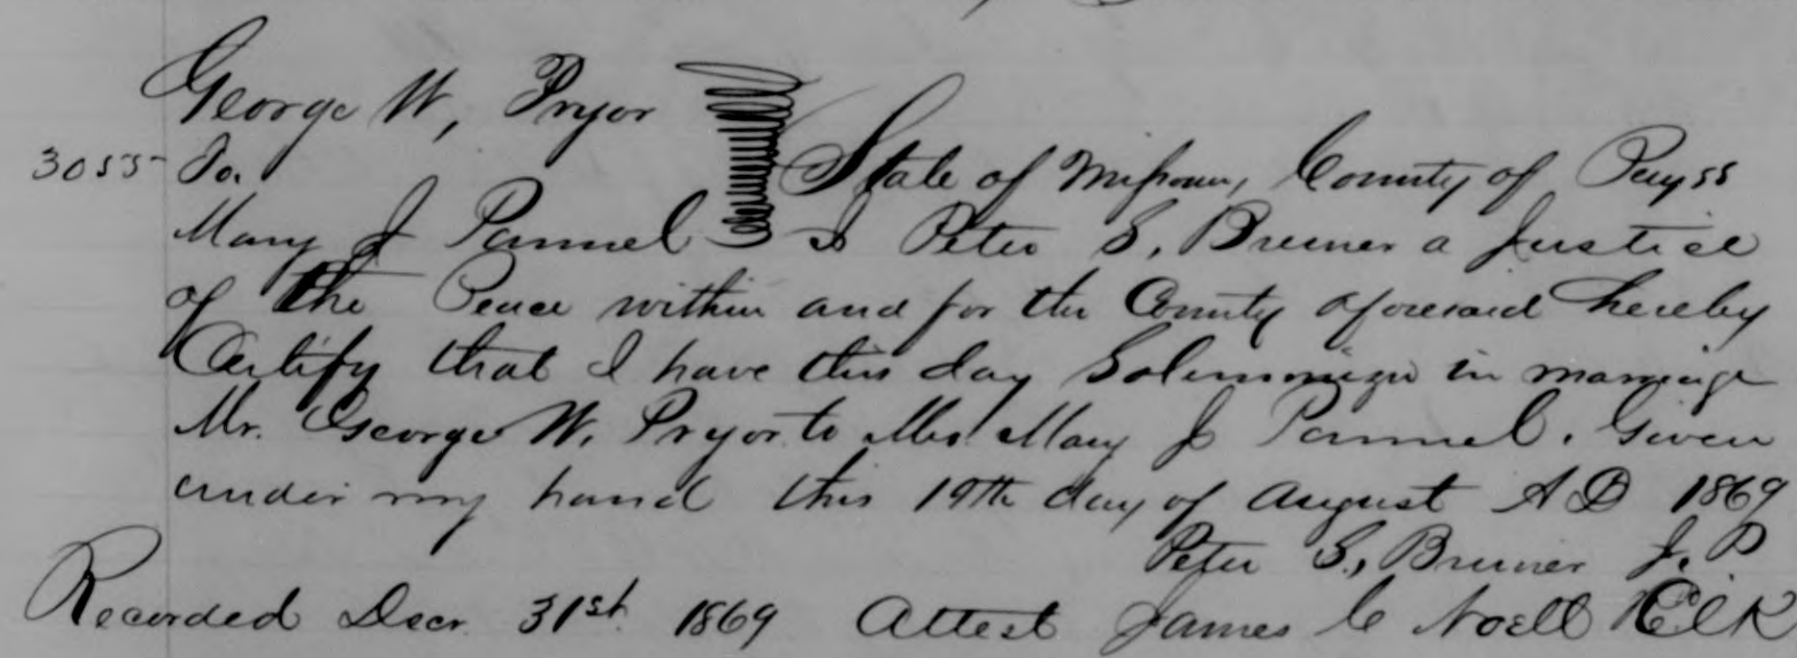 George W, Pryor
3055 To. State of Missouri, County of Perry ss
Mary J Pannel I Peter S, Bruner a Justice
of the Peace within and for the County aforesaid hereby
Certify that I have this day Solemnized in marriage
Mr. George W. Pryor to Mrs Mary J Pannel. Given
under my hand this 19th day of August AD 1869
Peter S, Bruner J. P
Recorded Decr. 31st 1869 Attest James C Noell Clk